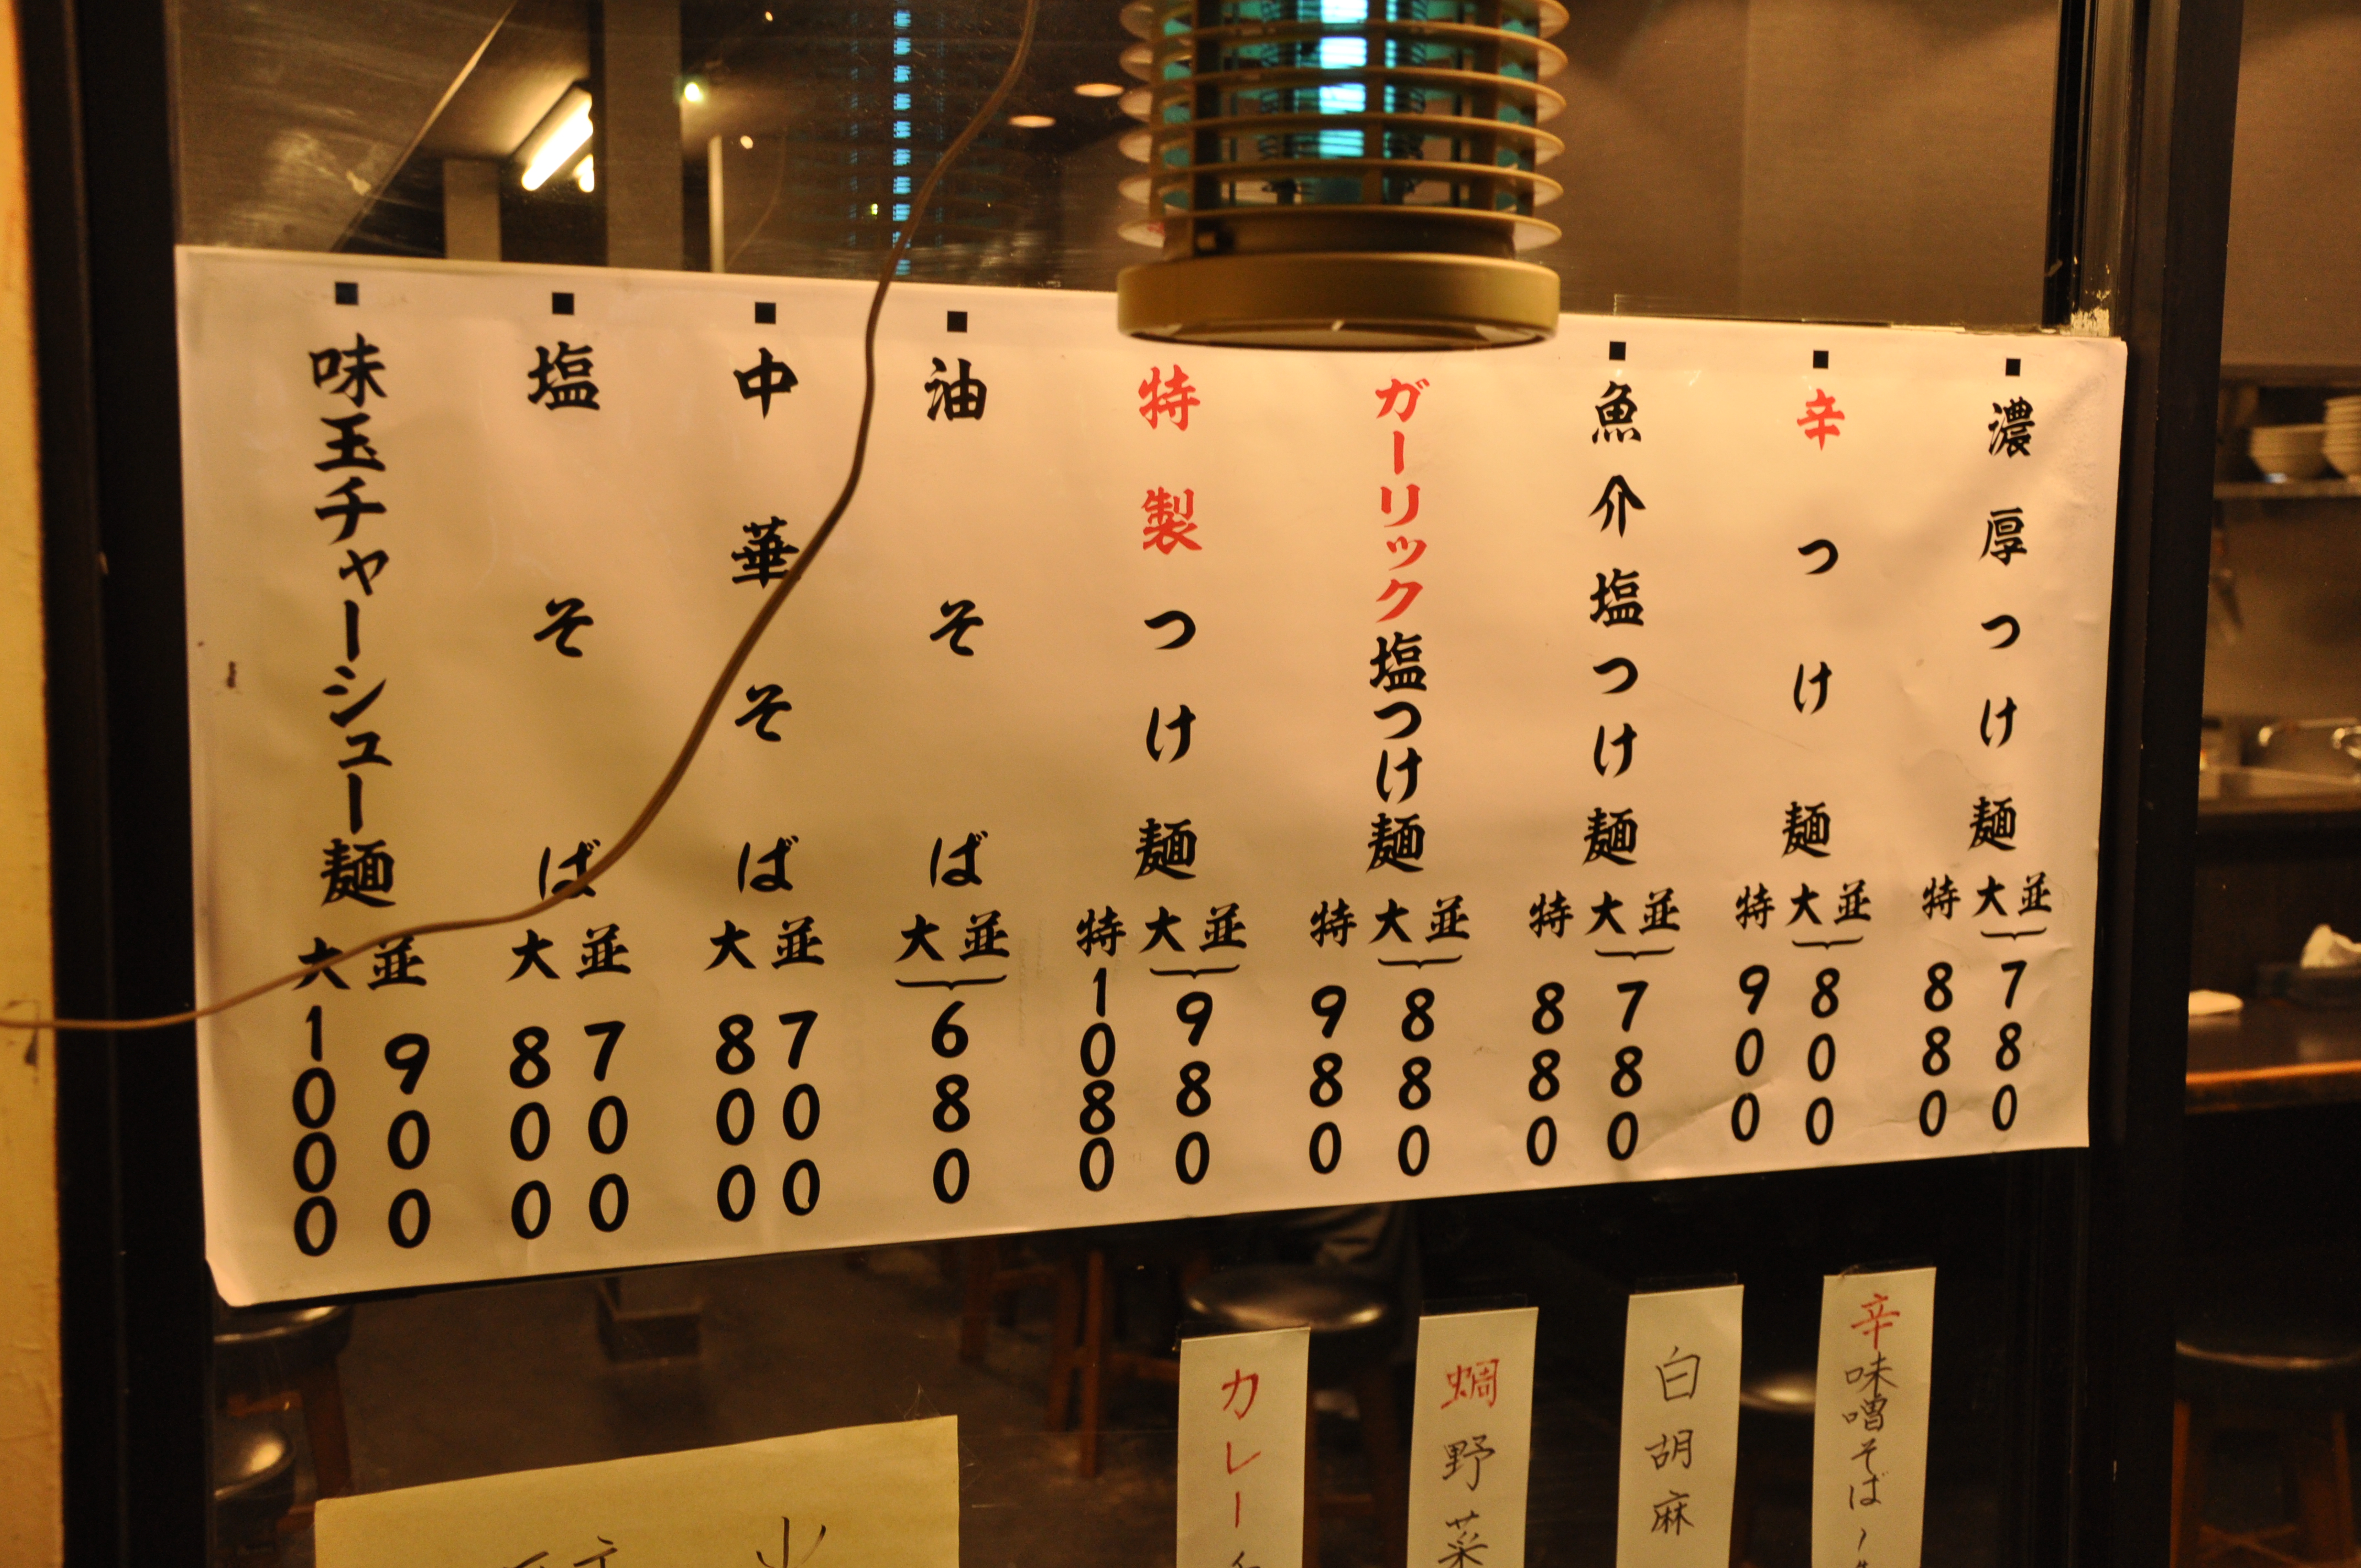 濃厚つけ麺 並 大 780 特 880
辛つけ麺 並 大 800 特 900
魚介塩つけ麺 並 大 780 特 880
ガーリック塩つけ麺 並 大 880 特 980
特製つけ麺 並 大 980 特 1080
油そば 並 大 680
中華そば 並 700 大 800
塩そば 並 700 大 800
味玉チャーシュー麺 並 900 大 1000
辛味噌そば
白胡麻
野菜
カレー